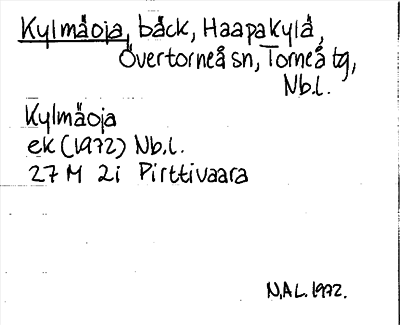 Kylmäoja, bäck, Haapakylä,
Övertorneå sn, Torneå tg,
Nb.l.
Kylmäoja
ek (1972) Nb.l.
27 M 2i Pirttivaara
N.A L. 1972.